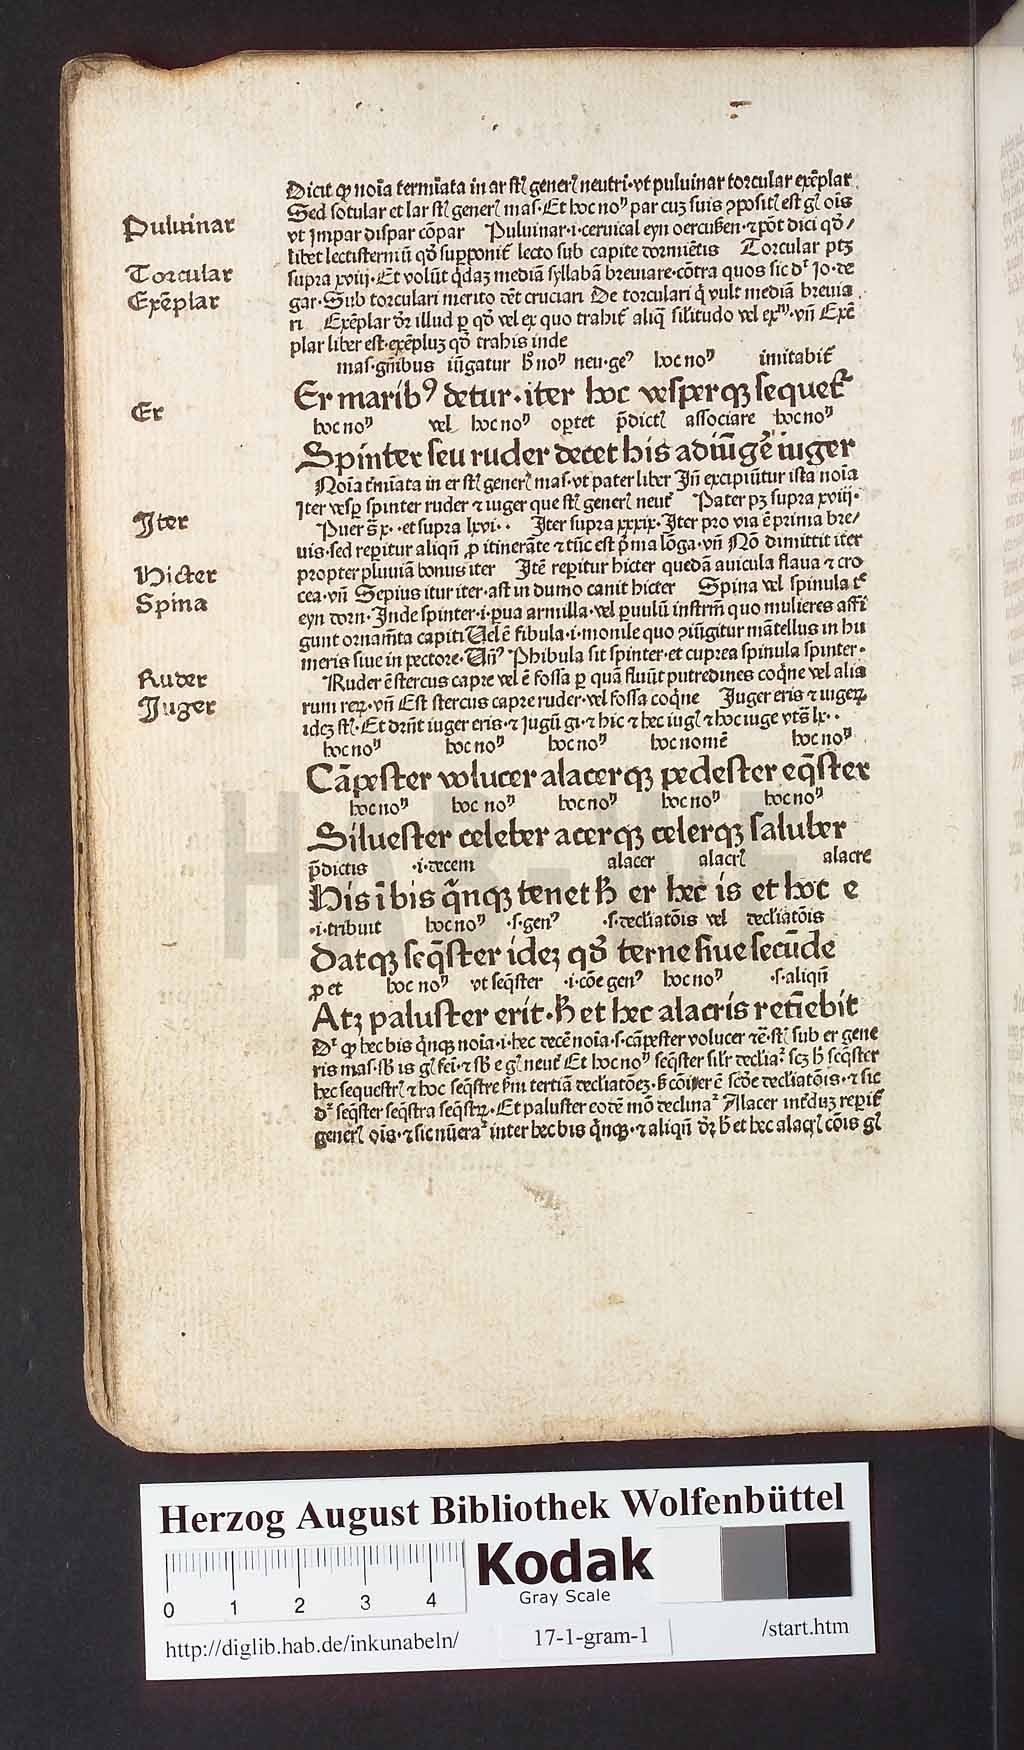 Dicit ꝙ noīa termīata in ar st̄ generꝭ neutri·vt puluinar torcular exēplar
Sed sotular et lar st̄ generꝭ mas·Et hoc noꝰ par cuꝫ suis ꝯpositꝭ est gꝭ oīs
vt impar dispar cōpar Puluinar·i·ceruical eyn oerkußen·⁊ pōt dici qđ/
Puluinar
libet lectisterniū qđ supponit̄ lecto sub capite dormiētis Torcular ptꝫ
Torcular
supra xviij·Et volūt q̄daꝫ mediā syllabā breuiare·cōtra quos sic dr̄ Jo·de
Exēplar
gar·Sub torculari merito dēt cruciari De torculari q̄ vult mediā breuia
ri Exēplar dr̄ illud ꝑ qđ vel ex quo trahit̄ aliq̄ silitudo vel exm̄·vn̄ Exē
plar liber est·exēpluꝫ qđ trahis inde
mas·gn̄ibus iūgatur h̄ noꝰ neu·geꝰ hoc noꝰ imitabit̄
Er maribꝰ detur·iter hoc vesperqꝫ sequet̄
Er
hoc noꝰ vel hoc noꝰ oportet p̄dictꝭ associare hoc noꝰ
Spinter seu ruder decet his adiūgē iuger
Noīa t̄mīata in er st̄ generꝭ mas·vt pater liber Jn̄ excipiūtur ista noīa
Iter vesꝑ spinter ruder ⁊ iuger que st̄ generꝭ neut̄ Pater pꝫ supra xviij·
Puer s̄ x··et supra lxvi·· Iter supra xxxix·Iter pro via ē prima bre/
Iter
uis·sed reperitur aliqn̄ ꝓ itinerāte ⁊ tūc est p̄ma lōga·vn̄ Nō dimittit iter
propter pluuiā bonus iter Itē reperitur hicter quedā auicula flaua ⁊ cro
Hicter
cea·vn̄ Sepius itur iter·ast in dumo canit hicter Spina vel spinula t̄
Spina
eyn dorn·Inde spinter·i·ꝑua armilla·vel ꝑuulū instrm̄ quo mulieres affi
gunt ornam̄ta capiti Vel ē fibula·i·monile quo ꝯiūgitur mātellus in hu
meris siue in pectore·Vn̄ Phibula sit spinter·et cuprea spinula spinter·
Ruder ē stercus capre vel ē fossa ꝑ quā fluūt putredines coq̄ne vel alia
Ruder
rum reꝝ·vn̄ Est stercus capre ruder·vel fossa coq̄ne Iuger eris ⁊ iugeꝝ
Iuger
ideꝫ st̄·Et drn̄t iuger eris·⁊ iugū gi·⁊ hic ⁊ hec iugꝭ ⁊ hoc iuge vts̄ lx··
hoc noꝰ hoc noꝰ hoc noꝰ hoc nomē hoc noꝰ
Cāpester volucer alacerqꝫ pedester eq̄ster
hoc noꝰ hoc noꝰ hoc noꝰ hoc noꝰ hoc noꝰ
Siluester celeber acerqꝫ celerqꝫ saluber
p̄dictis ·i·decem alacer alacrꝭ alacre
His ībis q̄nqꝫ tenet h̄ er hec is et hoc e
·i·tribuit hoc noꝰ ·s·genꝰ ·s·decl̄iatōis vel decl̄iatōis
Datqꝫ seq̄ster ideꝫ qđ terne siue secūde
ꝓ et hoc noꝰ vt seq̄ster ·i·cōe genꝰ hoc noꝰ ·s·aliqn̄
Atꝫ paluster erit·h̄ et hec alacris retīebit
Dr̄ ꝙ hec bis q̄nqꝫ noīa·i·hec decē noīa·s·cāpester volucer ⁊c̄·st̄ sub er gene
ris mas·sb̄ is gꝭ fei·⁊ sb̄ e gꝭ neut̄ Et hoc noꝰ seq̄ster silr̄ decliaꝛ̄ scꝫ h̄ seq̄ster
hec sequestrꝭ ⁊ hoc seq̄stre ẜm tertiā decliatōeꝫ·ꝫ cōiter ē scđe decliatōis·⁊ sic
dr̄ seq̄ster seq̄stra seq̄stꝝ·Et paluster eodē mō declinaꝛ̄ Alacer int̄duꝫ reꝑit̄
generꝭ oīs·⁊ sic nūeraꝛ̄ inter hec bis q̄nqꝫ·⁊ aliqn̄ dr̄ h̄ et hec alacrꝭ cōis gꝭ
Herzog August Bibliothek Wolfenbüttel
0 1 2 3 4
Kodak
Gray Scale
http://diglib.hab.de/inkunabeln/ 17-1-gram-1 /start.htm
HAB-WF